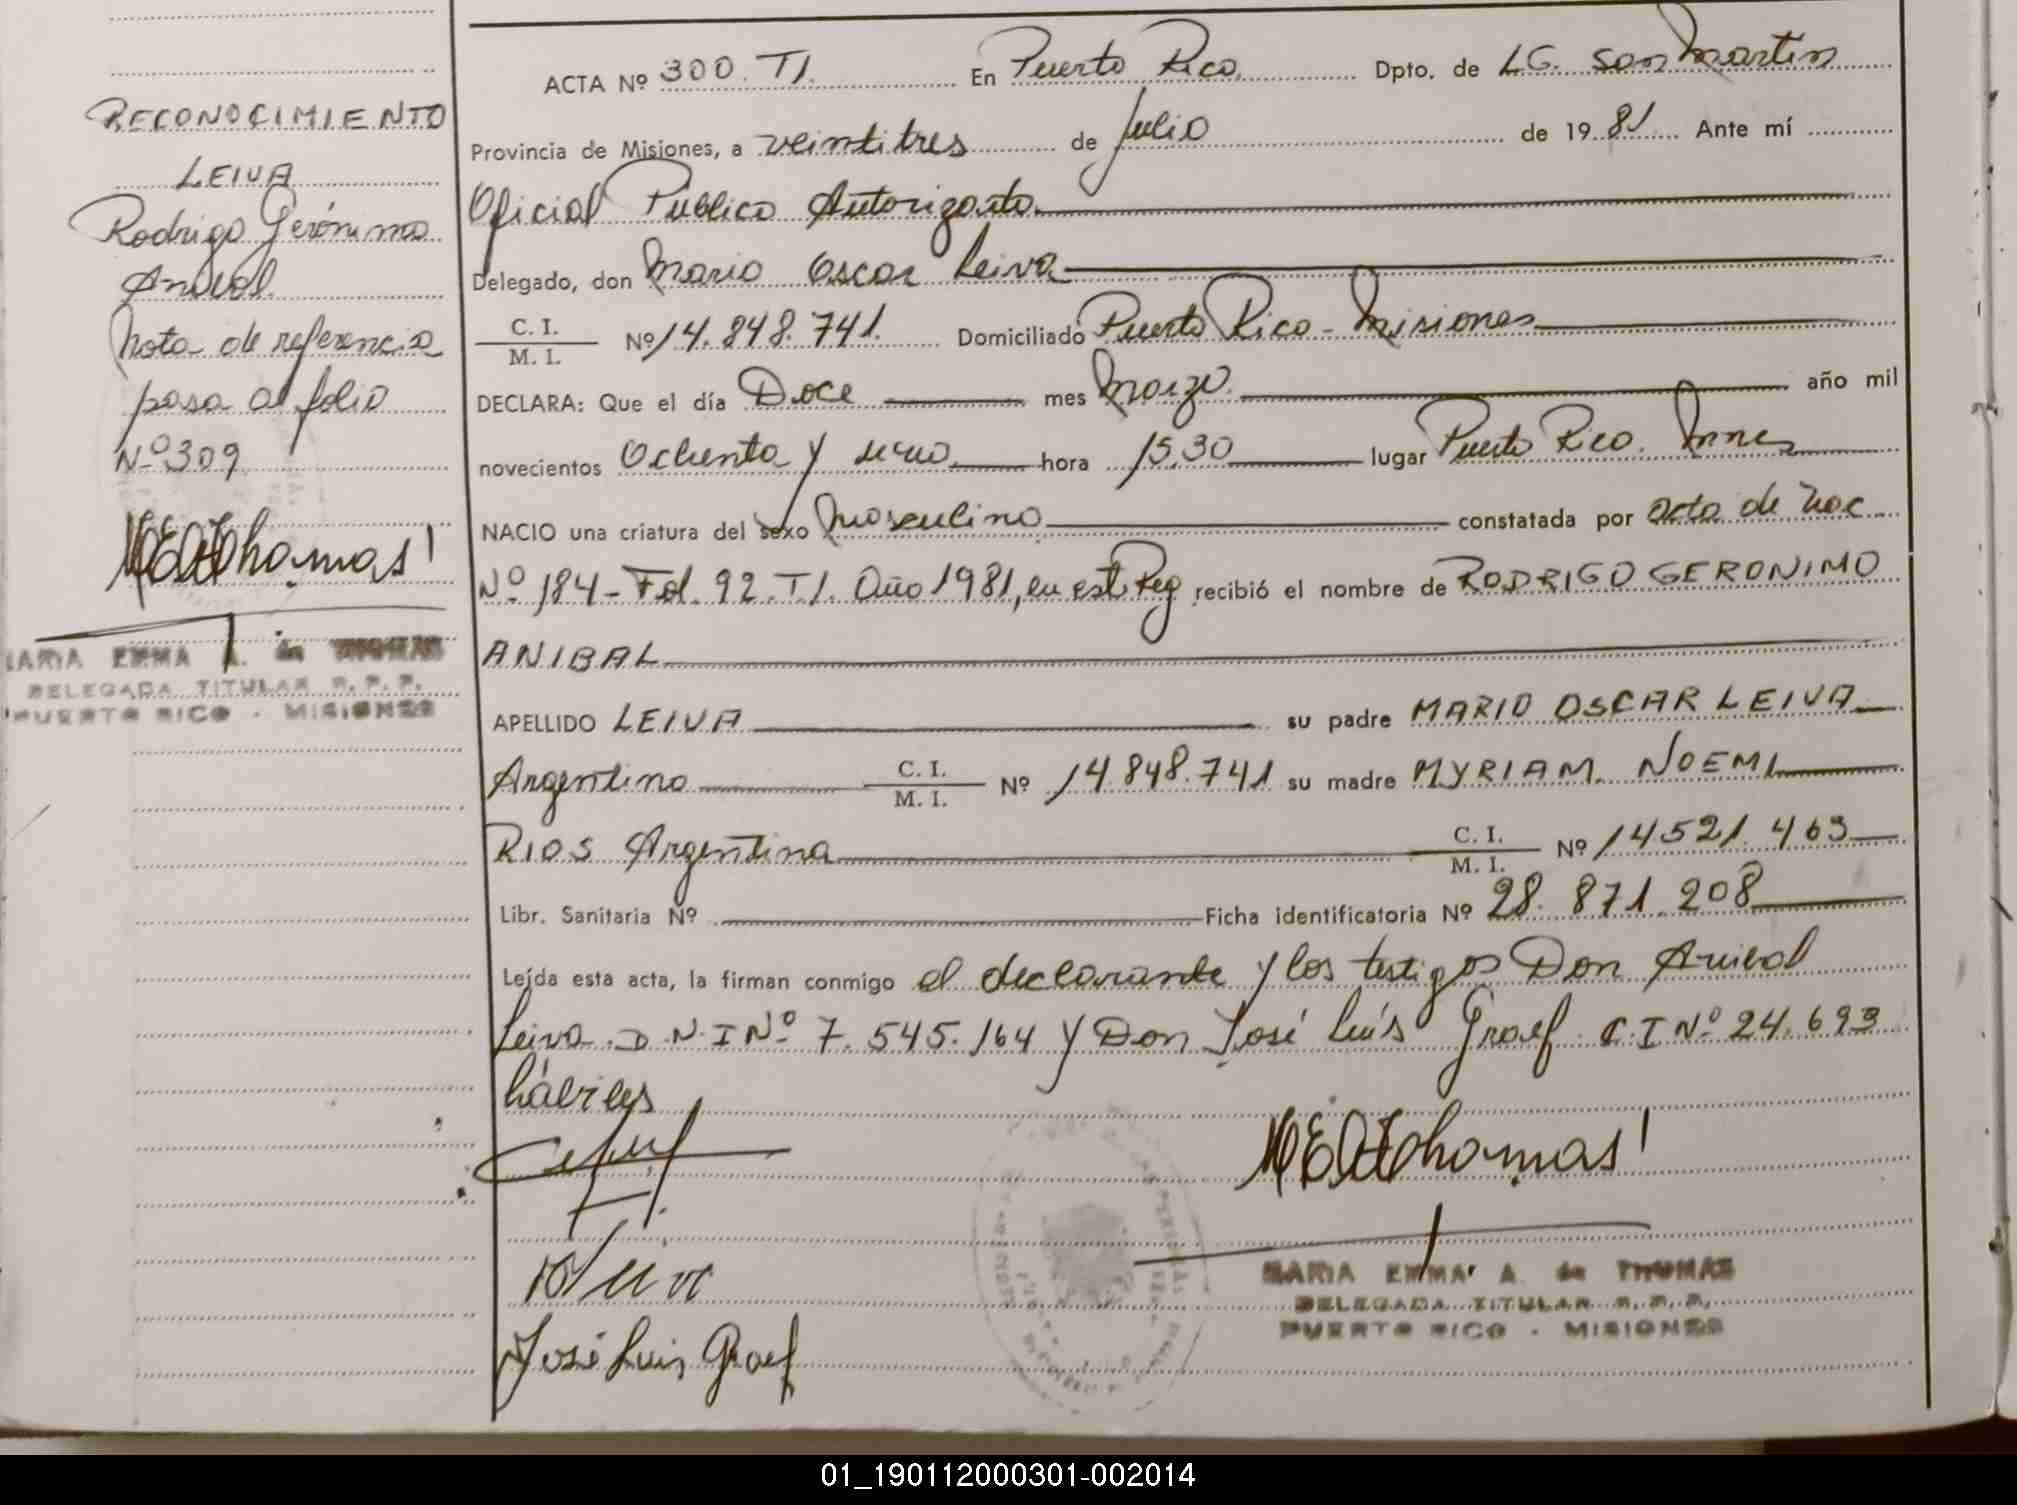 RECONOCIMIENTO
LEIVA
Rodrigo Gerónimo
Anibal
Nota de referencia
pasa al folio
Nº 309
MEAThomas
MARIA EMMA A. de THOMAS
DELEGADA TITULAR R. P. P.
PUERTO RICO - MISIONES
ACTA Nº 300. TI. En Puerto Rico Dpto. de LG. San Martin
Provincia de Misiones, a veintitres de Julio de 1981 Ante mí
Oficial Publico Autorizante
Delegado, don Mario Oscar Leiva
C. I.
M. I. Nº 14.848.741. Domiciliado Puerto Rico - Misiones
DECLARA: Que el día Doce mes Marzo. año mil
novecientos Ochenta y uno hora 15,30 lugar Puerto Rico. Mnes
NACIO una criatura del sexo Masculino constatada por acta de nac
Nº 184 - Fol. 92. T I. Año 1981, en est. Reg recibió el nombre de RODRIGO GERONIMO
ANIBAL
APELLIDO LEIVA su padre MARIO OSCAR LEIVA
Argentino C. I.
M. I. Nº 14.848.741 su madre MYRIAM NOEMI
RIOS Argentina C. I.
M. I. Nº 14521.463
Libr. Sanitaria Nº Ficha identificatoria Nº 28.871.208
Leída esta acta, la firman conmigo el declarante y los testigos Don Anibal
Leiva D.N.I Nº 7.545.164 y Don José Luis Graef C.I Nº 24.693
hábiles
MEAThomas
MARIA EMMA A. de THOMAS
DELEGADA TITULAR R. P. P.
PUERTO RICO - MISIONES
José Luis Graef
01_190112000301-002014